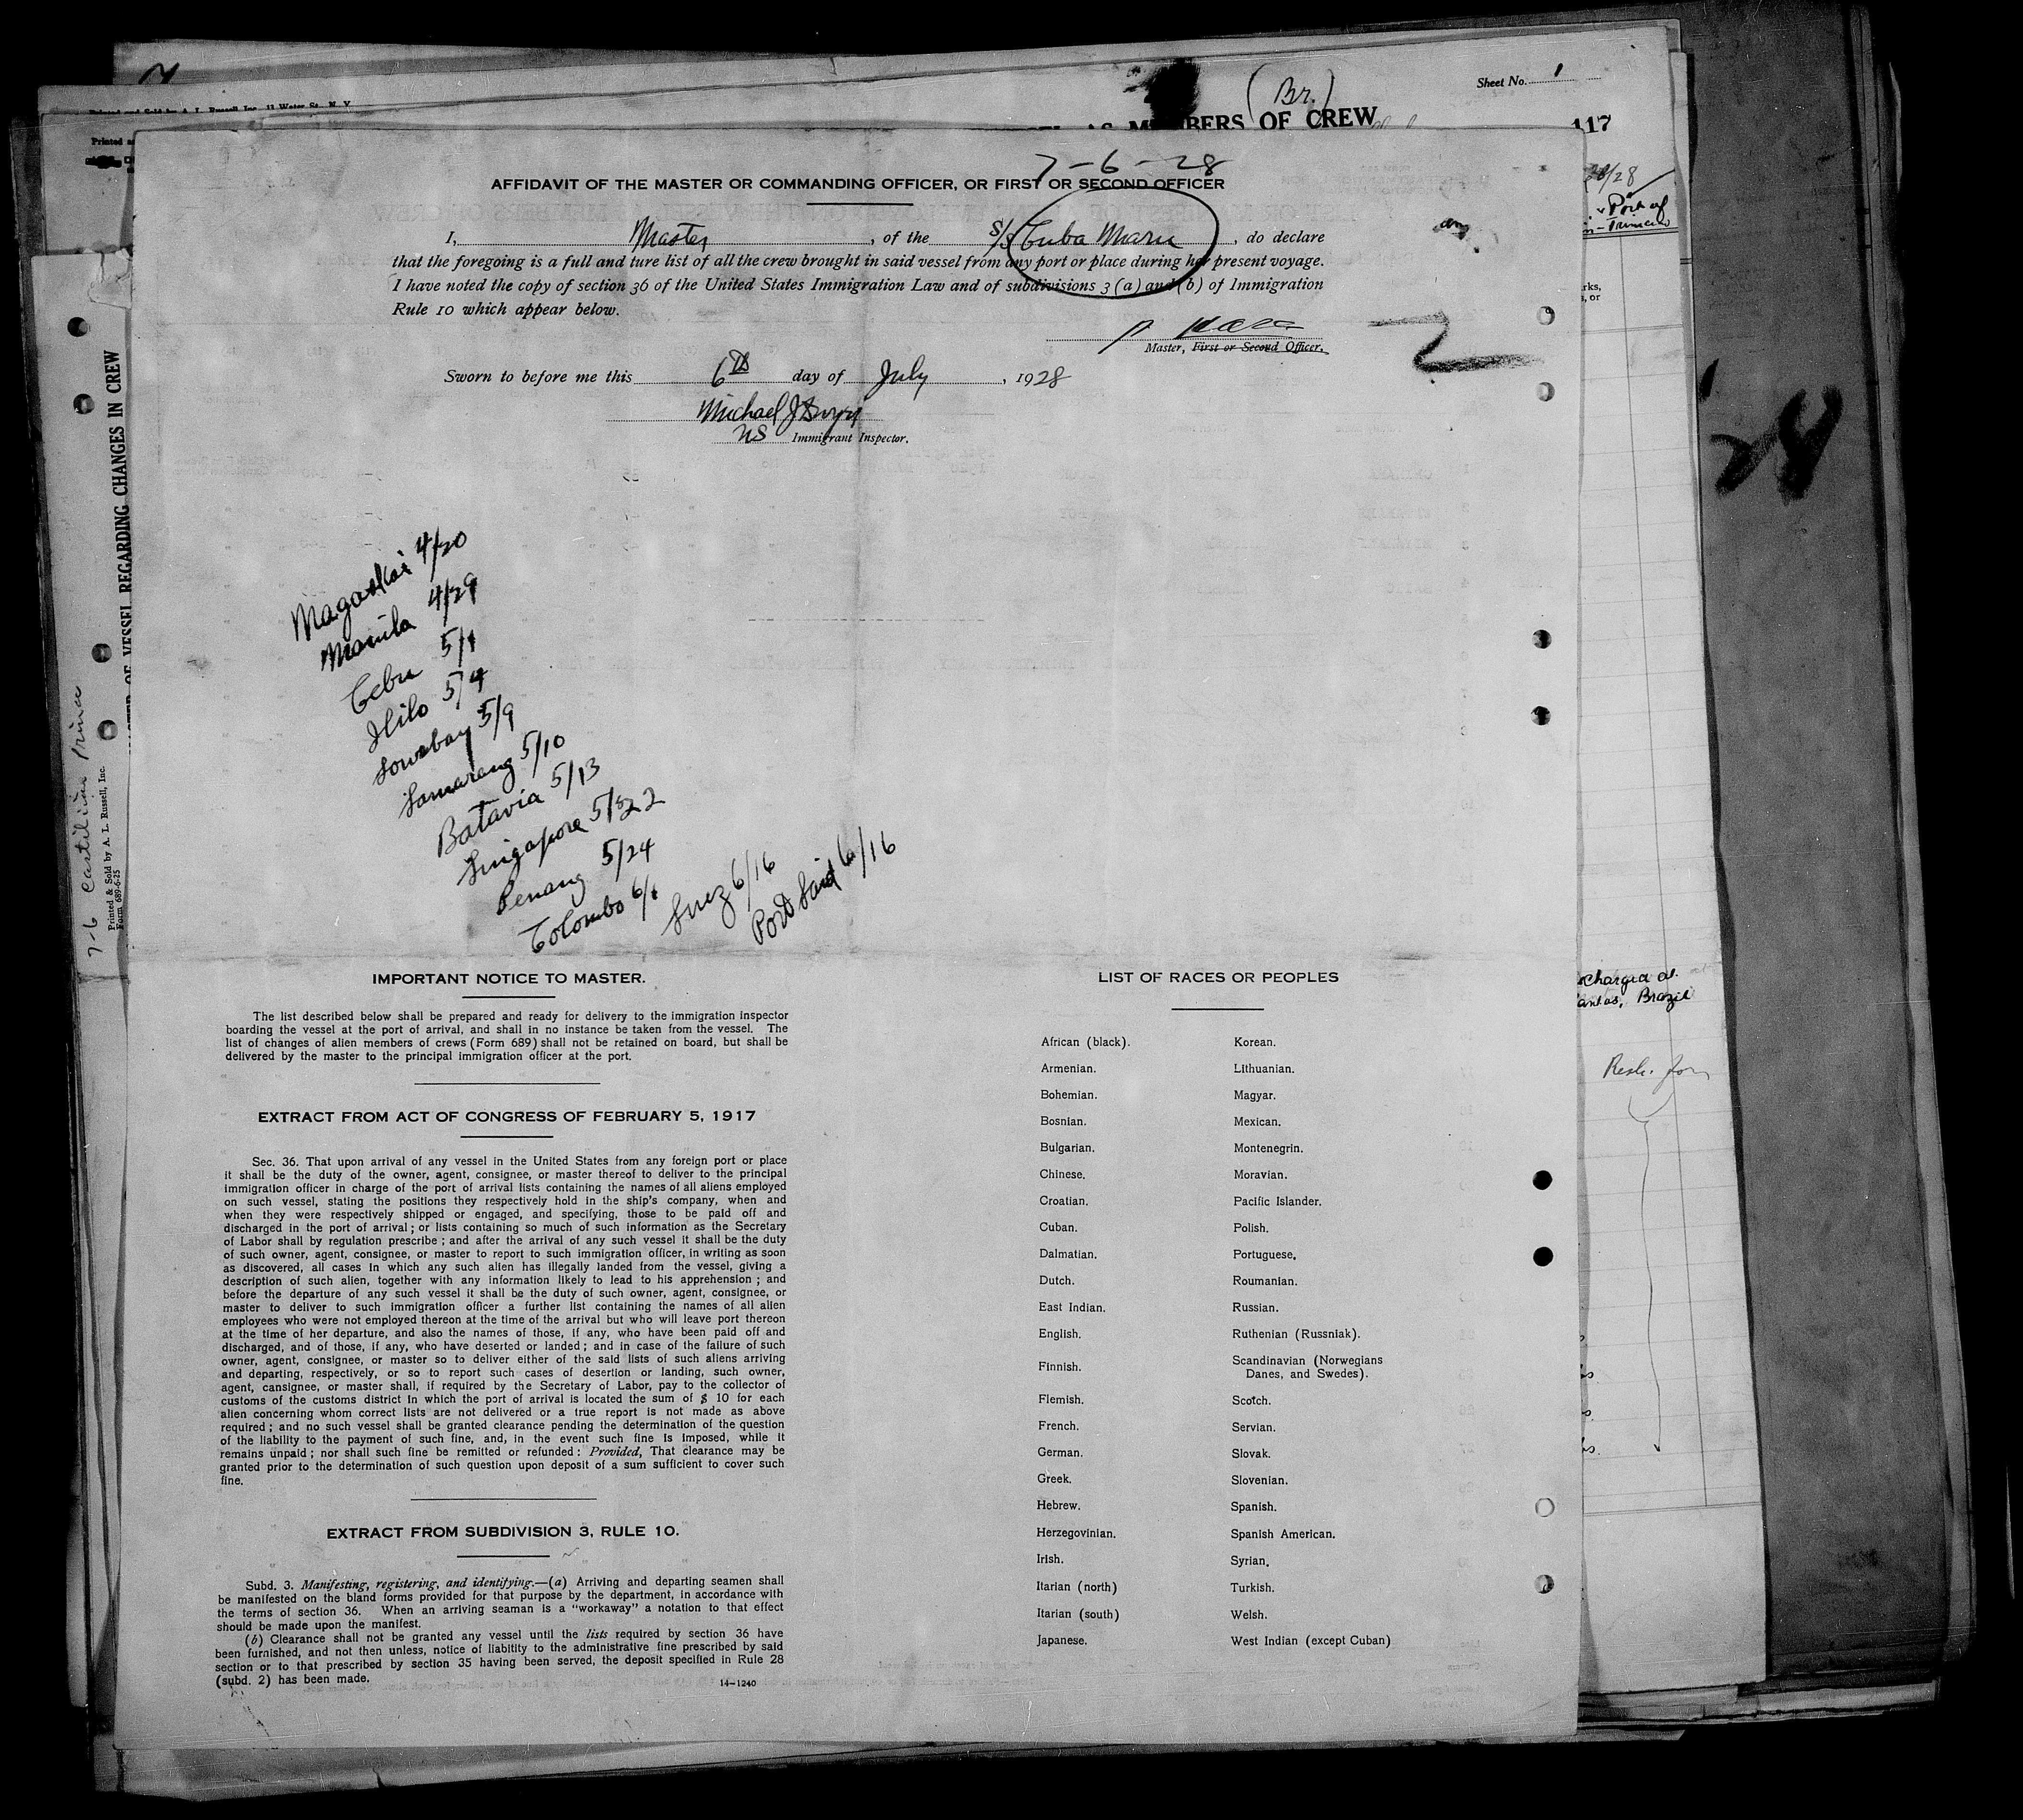 Sheet No. 1
(Br.)
MEMBERS OF CREW
117
7-6-28
AFFIDAVIT OF THE MASTER OR COMMANDING OFFICER, OR FIRST OR SECOND OFFICER
I, Master, of the S/S Cuba Maru, do declare
that the foregoing is a full and ture list of all the crew brought in said vessel from any port or place during her present voyage.
I have noted the copy of section 36 of the United States Immigration Law and of subdivisions 3 (a) and (b) of Immigration
Rule 10 which appear below.
Master, First or Second Officer.
Sworn to before me this 6th day of July, 1928
Michael J
US Immigrant Inspector.
4/20
Manila 4/29
Cebu 5/1
Ililo 5/4
Sourabay 5/9
Samarang 5/10
Batavia 5/13
Singapore 5/22
Penang 5/24
Colombo 6/1
Suez 6/16
Port Said 6/16
IMPORTANT NOTICE TO MASTER.
The list described below shall be prepared and ready for delivery to the immigration inspector
boarding the vessel at the port of arrival, and shall in no instance be taken from the vessel. The
list of changes of alien members of crews (Form 689) shall not be retained on board, but shall be
delivered by the master to the principal immigration officer at the port.
EXTRACT FROM ACT OF CONGRESS OF FEBRUARY 5, 1917
Sec. 36. That upon arrival of any vessel in the United States from any foreign port or place
it shall be the duty of the owner, agent, consignee, or master thereof to deliver to the principal
immigration officer in charge of the port of arrival lists containing the names of all aliens employed
on such vessel, stating the positions they respectively hold in the ship's company, when and
when they were respectively shipped or engaged, and specifying, those to be paid off and
discharged in the port of arrival; or lists containing so much of such information as the Secretary
of Labor shall by regulation prescribe; and after the arrival of any such vessel it shall be the duty
of such owner, agent, consignee, or master to report to such immigration officer, in writing as soon
as discovered, all cases in which any such alien has illegally landed from the vessel, giving a
description of such alien, together with any information likely to lead to his apprehension; and
before the departure of any such vessel it shall be the duty of such owner, agent, consignee, or
master to deliver to such immigration officer a further list containing the names of all alien
employees who were not employed thereon at the time of the arrival but who will leave port thereon
at the time of her departure, and also the names of those, if any, who have been paid off and
discharged, and of those, if any, who have deserted or landed; and in case of the failure of such
owner, agent, consignee, or master so to deliver either of the said lists of such aliens arriving
and departing, respectively, or so to report such cases of desertion or landing, such owner,
agent, cansignee, or master shall, if required by the Secretary of Labor, pay to the collector of
customs of the customs district in which the port of arrival is located the sum of $ 10 for each
alien concerning whom correct lists are not delivered or a true report is not made as above
required; and no such vessel shall be granted clearance pending the determination of the question
of the liability to the payment of such fine, and, in the event such fine is imposed, while it
remains unpaid; nor shall such fine be remitted or refunded: Provided, That clearance may be
granted prior to the determination of such question upon deposit of a sum sufficient to cover such
fine.
EXTRACT FROM SUBDIVISION 3, RULE 10.
Subd. 3. Manifesting, registering, and identifying.—(a) Arriving and departing seamen shall
be manifested on the bland forms provided for that purpose by the department, in accordance with
the terms of section 36. When an arriving seaman is a "workaway" a notation to that effect
should be made upon the manifest.
(b) Clearance shall not be granted any vessel until the lists required by section 36 have
been furnished, and not then unless, notice of liabtity to the administrative fine prescribed by said
section or to that prescribed by section 35 having been served, the deposit specified in Rule 28
(subd. 2) has been made.
14-1240
LIST OF RACES OR PEOPLES
African (black).
Armenian.
Bohemian.
Bosnian.
Bulgarian.
Chinese.
Croatian.
Cuban.
Dalmatian.
Dutch.
East Indian.
English.
Finnish.
Flemish.
French.
German.
Greek.
Hebrew.
Herzegovinian.
Irish.
Itarian (north)
Itarian (south)
Japanese.
Korean.
Lithuanian.
Magyar.
Mexican.
Montenegrin.
Moravian.
Pacific Islander.
Polish.
Portuguese.
Roumanian.
Russian.
Ruthenian (Russniak).
Scandinavian (Norwegians
Danes, and Swedes).
Scotch.
Servian.
Slovak.
Slovenian.
Spanish.
Spanish American.
Syrian.
Turkish.
Welsh.
West Indian (except Cuban)
VESSEL REGARDING CHANGES IN CREW
Printed & Sold by A. L. Russell, Inc.
Form 689-6-25
7-6 Castilian Prince
Port of
Brazil
28